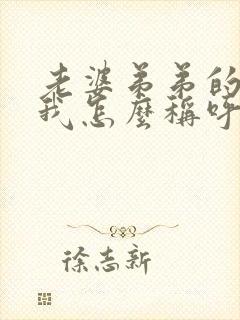 老婆弟弟的
我怎麼稱呼
徐志新